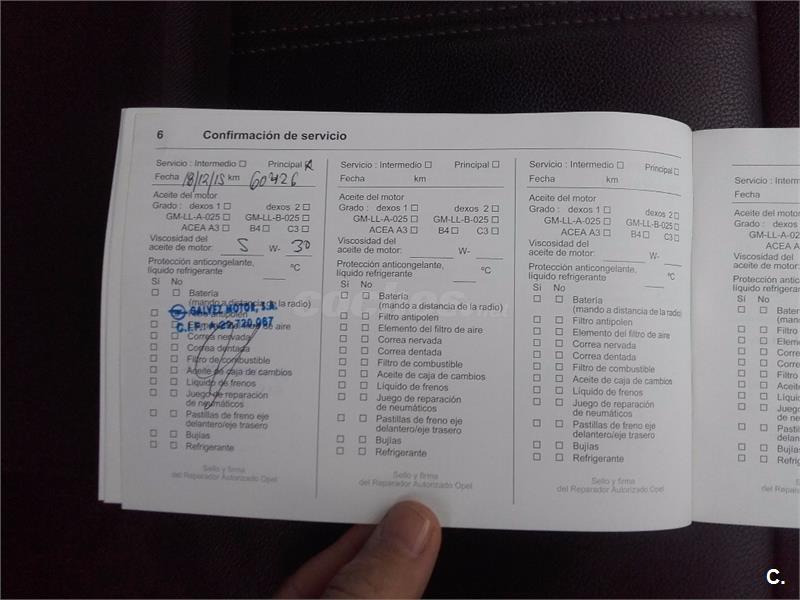 6 Confirmación de servicio
Servicio : Intermedio ☐ Principal ☒
Fecha 18/12/15 km 60426
Aceite del motor
Grado : dexos 1 ☐ dexos 2 ☐
GM-LL-A-025 ☐ GM-LL-B-025 ☐
ACEA A3 ☐ B4 ☐ C3 ☐
Viscosidad del
aceite de motor: 5 W- 30
Protección anticongelante,
líquido refrigerante °C
Sí No
☐ ☐ Batería
(mando a distancia de la radio)
GALVEZ MOTOR, S.A.
☐ ☐ Filtro antipolen
C.I.F.
☐ ☐ Elemento del filtro de aire
☐ ☐ Correa nervada
☐ ☐ Correa dentada
☐ ☐ Filtro de combustible
☐ ☐ Aceite de caja de cambios
☐ ☐ Líquido de frenos
☐ ☐ Juego de reparación
de neumáticos
☐ ☐ Pastillas de freno eje
delantero/eje trasero
☐ ☐ Bujías
☐ ☐ Refrigerante
Sello y firma
del Reparador Autorizado Opel
Servicio : Intermedio ☐ Principal ☐
Fecha km
Aceite del motor
Grado : dexos 1 ☐ dexos 2 ☐
GM-LL-A-025 ☐ GM-LL-B-025 ☐
ACEA A3 ☐ B4 ☐ C3 ☐
Viscosidad del
aceite de motor: W-
Protección anticongelante,
líquido refrigerante °C
Sí No
☐ ☐ Batería
(mando a distancia de la radio)
☐ ☐ Filtro antipolen
☐ ☐ Elemento del filtro de aire
☐ ☐ Correa nervada
☐ ☐ Correa dentada
☐ ☐ Filtro de combustible
☐ ☐ Aceite de caja de cambios
☐ ☐ Líquido de frenos
☐ ☐ Juego de reparación
de neumáticos
☐ ☐ Pastillas de freno eje
delantero/eje trasero
☐ ☐ Bujías
☐ ☐ Refrigerante
Sello y firma
del Reparador Autorizado Opel
Servicio : Intermedio ☐ Principal ☐
Fecha km
Aceite del motor
Grado : dexos 1 ☐ dexos 2 ☐
GM-LL-A-025 ☐ GM-LL-B-025 ☐
ACEA A3 ☐ B4 ☐ C3 ☐
Viscosidad del
aceite de motor: W-
Protección anticongelante,
líquido refrigerante °C
Sí No
☐ ☐ Batería
(mando a distancia de la radio)
☐ ☐ Filtro antipolen
☐ ☐ Elemento del filtro de aire
☐ ☐ Correa nervada
☐ ☐ Correa dentada
☐ ☐ Filtro de combustible
☐ ☐ Aceite de caja de cambios
☐ ☐ Líquido de frenos
☐ ☐ Juego de reparación
de neumáticos
☐ ☐ Pastillas de freno eje
delantero/eje trasero
☐ ☐ Bujías
☐ ☐ Refrigerante
Sello y firma
del Reparador Autorizado Opel
Servicio : Interm
Fecha
Aceite del motor
Grado : dexos
GM-LL-A-0
ACEA A
Viscosidad del
aceite de motor:
Protección anticongel
líquido refrigerante
Sí No
☐ ☐ Bater
(mand
☐ ☐ Filtro
☐ ☐ Eleme
☐ ☐ Corre
☐ ☐ Corre
☐ ☐ Filtro
☐ ☐ Aceite
☐ ☐ Líqui
☐ ☐ Juego
de ne
☐ ☐ Pasti
delan
☐ ☐ Bujía
☐ ☐ Refri
S
del Repara
C.